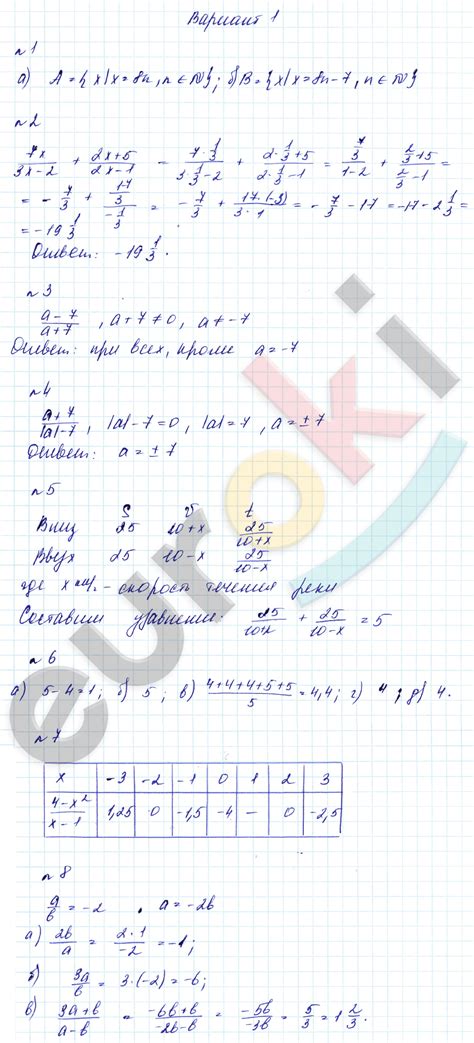 Вариант 1
n 1
а) A = { x | x = 8n, n ∈ N }; б) B = { x | x = 8n - 7, n ∈ N }
n 2
7x/(3x-2) + (2x+5)/(2x-1) = (7·1/3)/(3·1/3-2) + (2·1/3+5)/(2·1/3-1) = (7/3)/(1-2) + (2/3+5)/(2/3-1) =
= - 7/3 + (17/3)/(-1/3) = - 7/3 + (17·(-3))/(3·1) = - 7/3 - 17 = -17 - 2 1/3 =
= -19 1/3
Ответ: -19 1/3.
n 3
(a-7)/(a+7), a+7 ≠ 0, a ≠ -7
Ответ: при всех, кроме a = -7
n 4
(a+7)/(|a|-7), |a|-7=0, |a|=7, a = ± 7
Ответ: a = ± 7
n 5
S v t
Вниз 25 10+x 25/(10+x)
Вверх 25 10-x 25/(10-x)
где x км/ч - скорость течения реки
Составим уравнение: 25/(10+x) + 25/(10-x) = 5
n 6
а) 5-4=1; б) 5; в) (4+4+4+5+5)/5 = 4,4; г) 4; д) 4.
n 7
x -3 -2 -1 0 1 2 3
(4-x²)/(x-1) 1,25 0 -1,5 -4 — 0 -2,5
n 8
a/b = -2 a = -2b
а) 2b/a = (2·1)/(-2) = -1;
б) 3a/b = 3·(-2) = -6;
в) (3a+b)/(a-b) = (-6b+b)/(-2b-b) = (-5b)/(-3b) = 5/3 = 1 2/3.
euroki